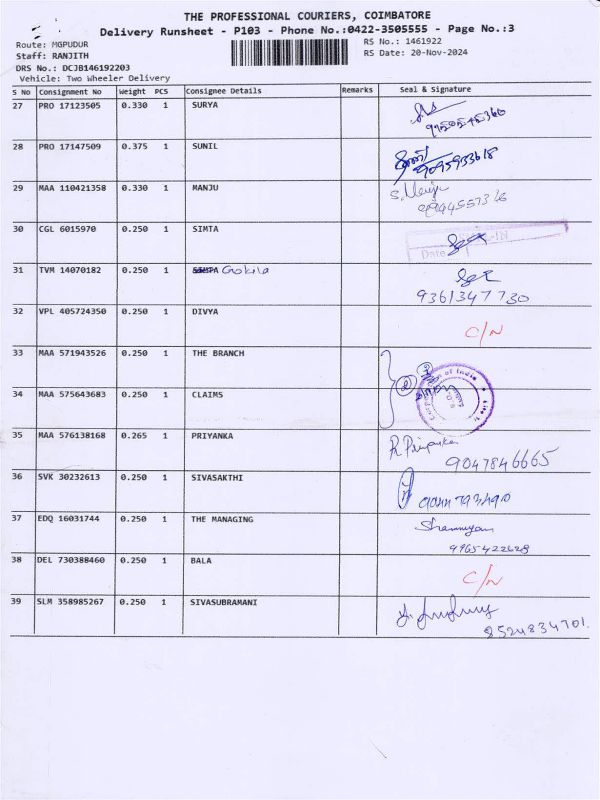 THE PROFESSIONAL COURIERS, COIMBATORE
Delivery Runsheet - P103 - Phone No.:0422-3505555 - Page No.:3
Route: MGPUDUR RS No.: 1461922
Staff: RANJITH RS Date: 20-Nov-2024
DRS No.: DCJB146192203
Vehicle: Two Wheeler Delivery
S No Consignment No Weight PCS Consignee Details Remarks Seal & Signature
27 PRO 17123505 0.330 1 SURYA
28 PRO 17147509 0.375 1 SUNIL
9095933618
29 MAA 110421358 0.330 1 MANJU
S. Manju
30 CGL 6015970 0.250 1 SIMTA
Date
31 TVM 14070182 0.250 1 Gokila
9361347730
32 VPL 405724350 0.250 1 DIVYA
C/N
33 MAA 571943526 0.250 1 THE BRANCH
34 MAA 575643683 0.250 1 CLAIMS
of India
35 MAA 576138168 0.265 1 PRIYANKA
R. Priyanka
9047846665
36 SVK 30232613 0.250 1 SIVASAKTHI
37 EDQ 16031744 0.250 1 THE MANAGING
9965422628
38 DEL 730388460 0.250 1 BALA
C/N
39 SLM 358985267 0.250 1 SIVASUBRAMANI
8524834701.